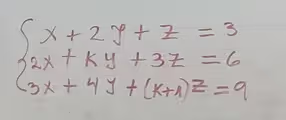 x + 2y + z = 3
2x + ky + 3z = 6
3x + 4y + (k+1)z = 9